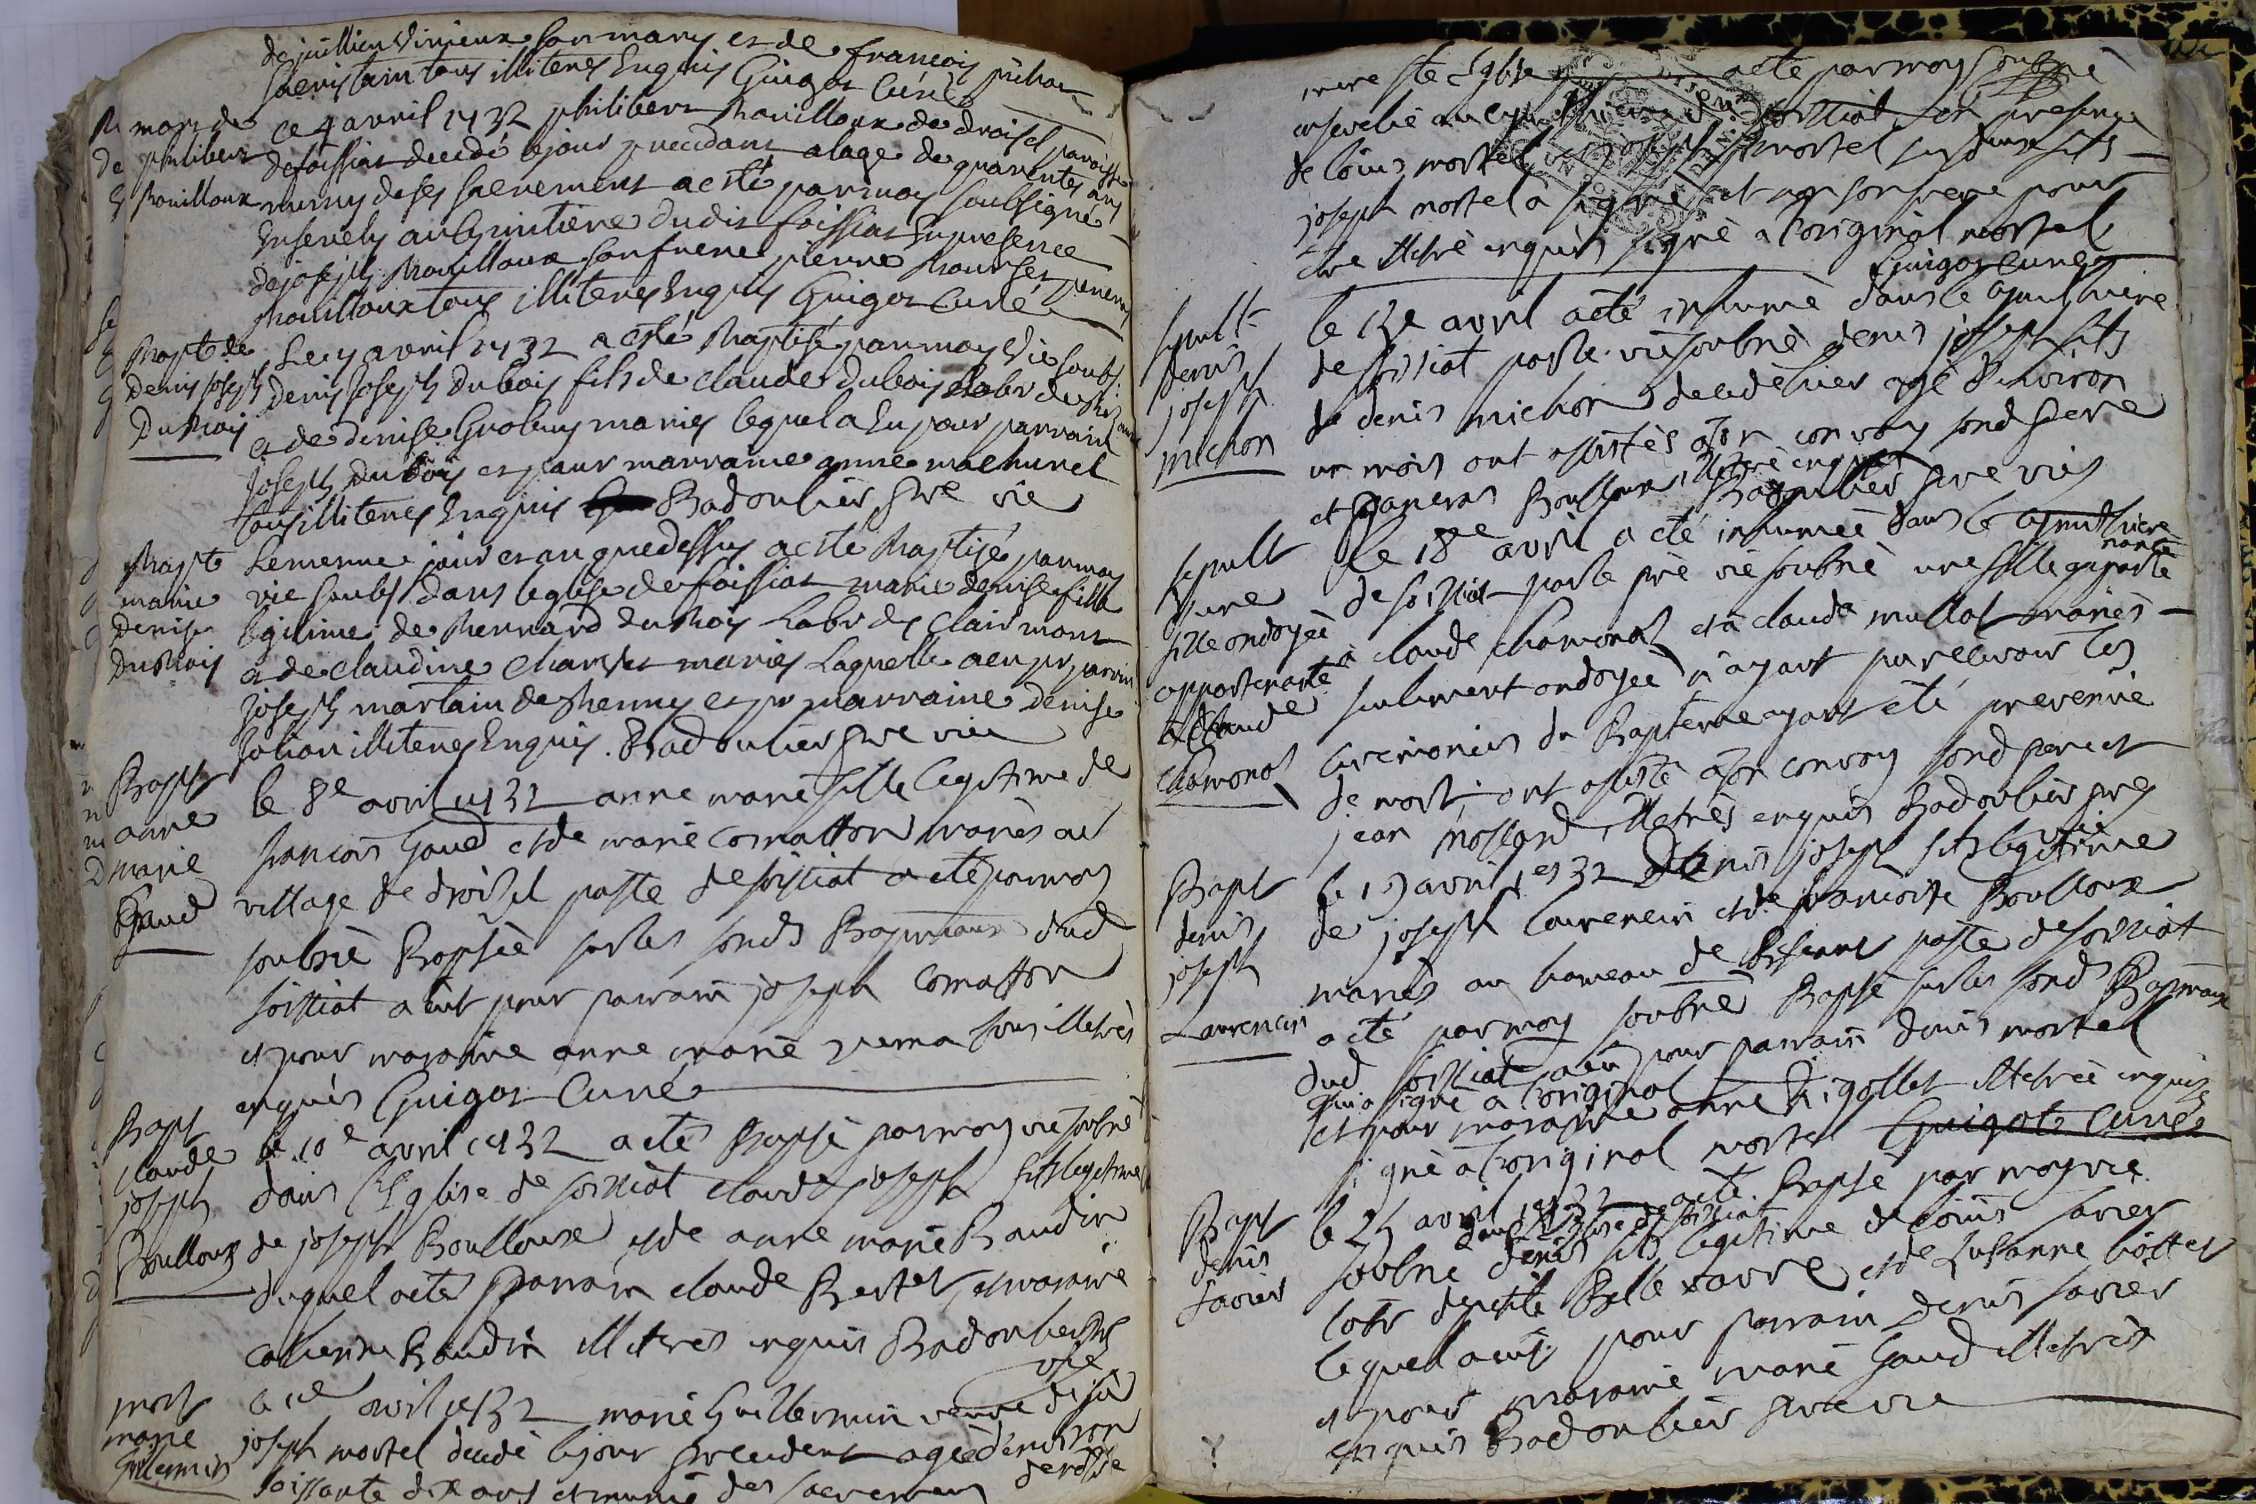 de juillien Vinieux son mary et de françois pichat
sacristain tous illiteres Enquis Guigot Curé
mort de
philibert
Bouilloux
ce 4 avril 1732 philibert Bouilloux de droisel paroisse
de foissiat decedé le jour precedant a lage de quarentes ans
muny de ses sacrement a esté par moy soubsigné
Ensevely au cymitiere dudit foissiat En presence
de joseph Bouilloux son frere pierre
Bouilloux tous illiteres Enquis Guigot Curé
Bapt de
denis joseph
Dubois
Le 7 avril 1732 a esté Baptisé par moy Vie soubs.
denis joseph Dubois fils de claude Dubois labr de
et de denise Grobuy mariés lequel a Eu pour parrain
joseph Dubois et pour marraine anne
tous illiteres Enquis Badoulier ptre vic
Bapt
marie
denise
Dubois
Le meme jour et an que dessus a esté Baptizé par moy
vic soubs. dans leglise de foissiat marie denise fille
legitime de Bernard du Bois Labr de Clairmont
et de claudine mariés Laquelle a eu pr parrin
joseph martain de et pr marraine denise
illiteres Enquis. Badoulier ptre vic
Bapt
anne
marie
Gaud
le 8e avril 1732 anne marie fille legitime de
francois Gaud et de marie Comatton mariés au
village de droisel passe de foissiat a eté par moy
soubné Bapsée sur les fonds Bapmaux dud
foissiat a eut pour parrain joseph Comatton
et pour maraine anne marie tous illetrés
enquis Guigot Curé
Bapt
claude
joseph
Boulloux
le 10e avril 1732 a eté Bapsé par moy vic soubné
dans l'Eglise de foissiat claude joseph fils legitime
de joseph Boulloux et de anne marie Baudin
duquel a eté parrain claude Bertet et maraine
catherine Baudin illetrés enquis Badoulier ptre
vic
mort
marie
Guillermin
avril 1732 marie Guillermin veuve de feu
joseph mortel decedé le jour precedent agée d'environ
soissante dix ans et munie des sacremens de nostre
mere ste Eglise a eté par moy soubné
ensevelie au cymithiere de foissiat en presence
de louis mortel et joseph mortel ses deux fils
joseph mortel a signé et non son frere pour
etre illetré enquis signé a l'original mortel
Guigot Curé
sepult
denis
joseph
michon
le 13e avril a eté inhumé dans le cymithiere
de foissiat par le vic soubné denis joseph fils
de denis michon decedé hier agé d'environ
un mois ont assistés a son convoy sond pere
et Boulloux illetré enquis
Badoulier ptre vic
sepult
d'une
fille ondoyée
appartenante
a claude
chamonal
le 18e avril a eté inhumée dans le cymithiere
de foissiat par le pre vic soubné une fille aparte
nante
a claude chamonal et a claude mullat mariés
seulement ondoyée n'ayant pu recevoir les
ceremonies du Bapteme ayant eté prevenüe
de mort, ont assisté a son convoy sond pere et
jean illetrés enquis Badoulier ptre
vic
Bapt
denis
joseph
Laurencin
le 19 avril 1732 Denis joseph fils legitime
de joseph Laurencin et de francoise Boulloux
mariés au hameau de passe de foissiat
a eté par moy soubné Bapsé sur les fonds Bapmaux
dud foissiat a eu pour parrain denis mortel
qui a signé a l'original
et pour maraine anne Rigollet illetrée enquis
signé a l'original mortel Guigot Curé
Bapt
denis
favier
le 24 avril 1732 a eté Bapsé par moy vic
dans l'Eglise de foissiat
soubné denis fils legitime de louis favier
labr de et de Susanne
lequel a eut pour parrain denis favier
et pour maraine marie Gaud illetrés
enquis Badoulier ptre vic